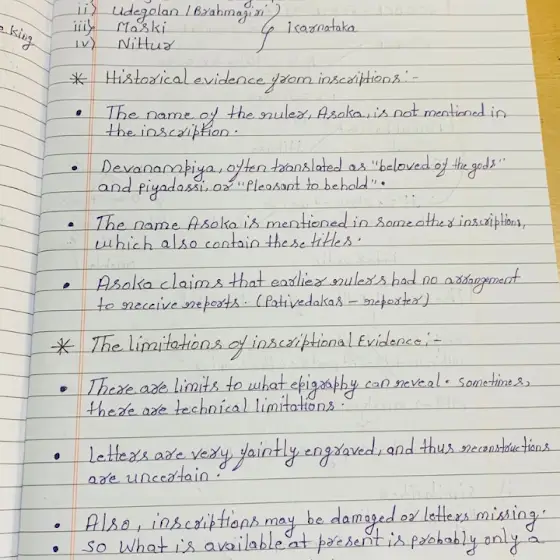 ii) Udegolan / Brahmagiri
iii) Maski
iv) Nittur
} Karnataka
e King
* Historical evidence from inscriptions :-
• The name of the ruler, Asoka, is not mentioned in
the inscription.
• Devanampiya, often translated as "beloved of the gods"
and piyadassi, or "Pleasant to behold".
• The name Asoka is mentioned in some other inscriptions,
which also contain these titles.
• Asoka claims that earlier rulers had no arrangement
to receive reports. (Pativedakas - reporter)
* The limitations of inscriptional Evidence :-
• There are limits to what epigraphy can reveal. sometimes,
there are technical limitations.
• Letters are very faintly engraved, and thus reconstructions
are uncertain.
• Also, inscriptions may be damaged or letters missing.
• So what is available at present is probably only a